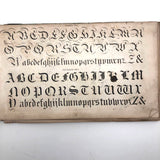 ABCDEFGHIJKLM
NOPQRSTUVWXYZ
abcdefghijklmnopqrstuvwxyz&
ABCDEFGHIJKLM
NOPQRSTUVWXYZ
abcdefghijklmnopqrstuvwxyz&